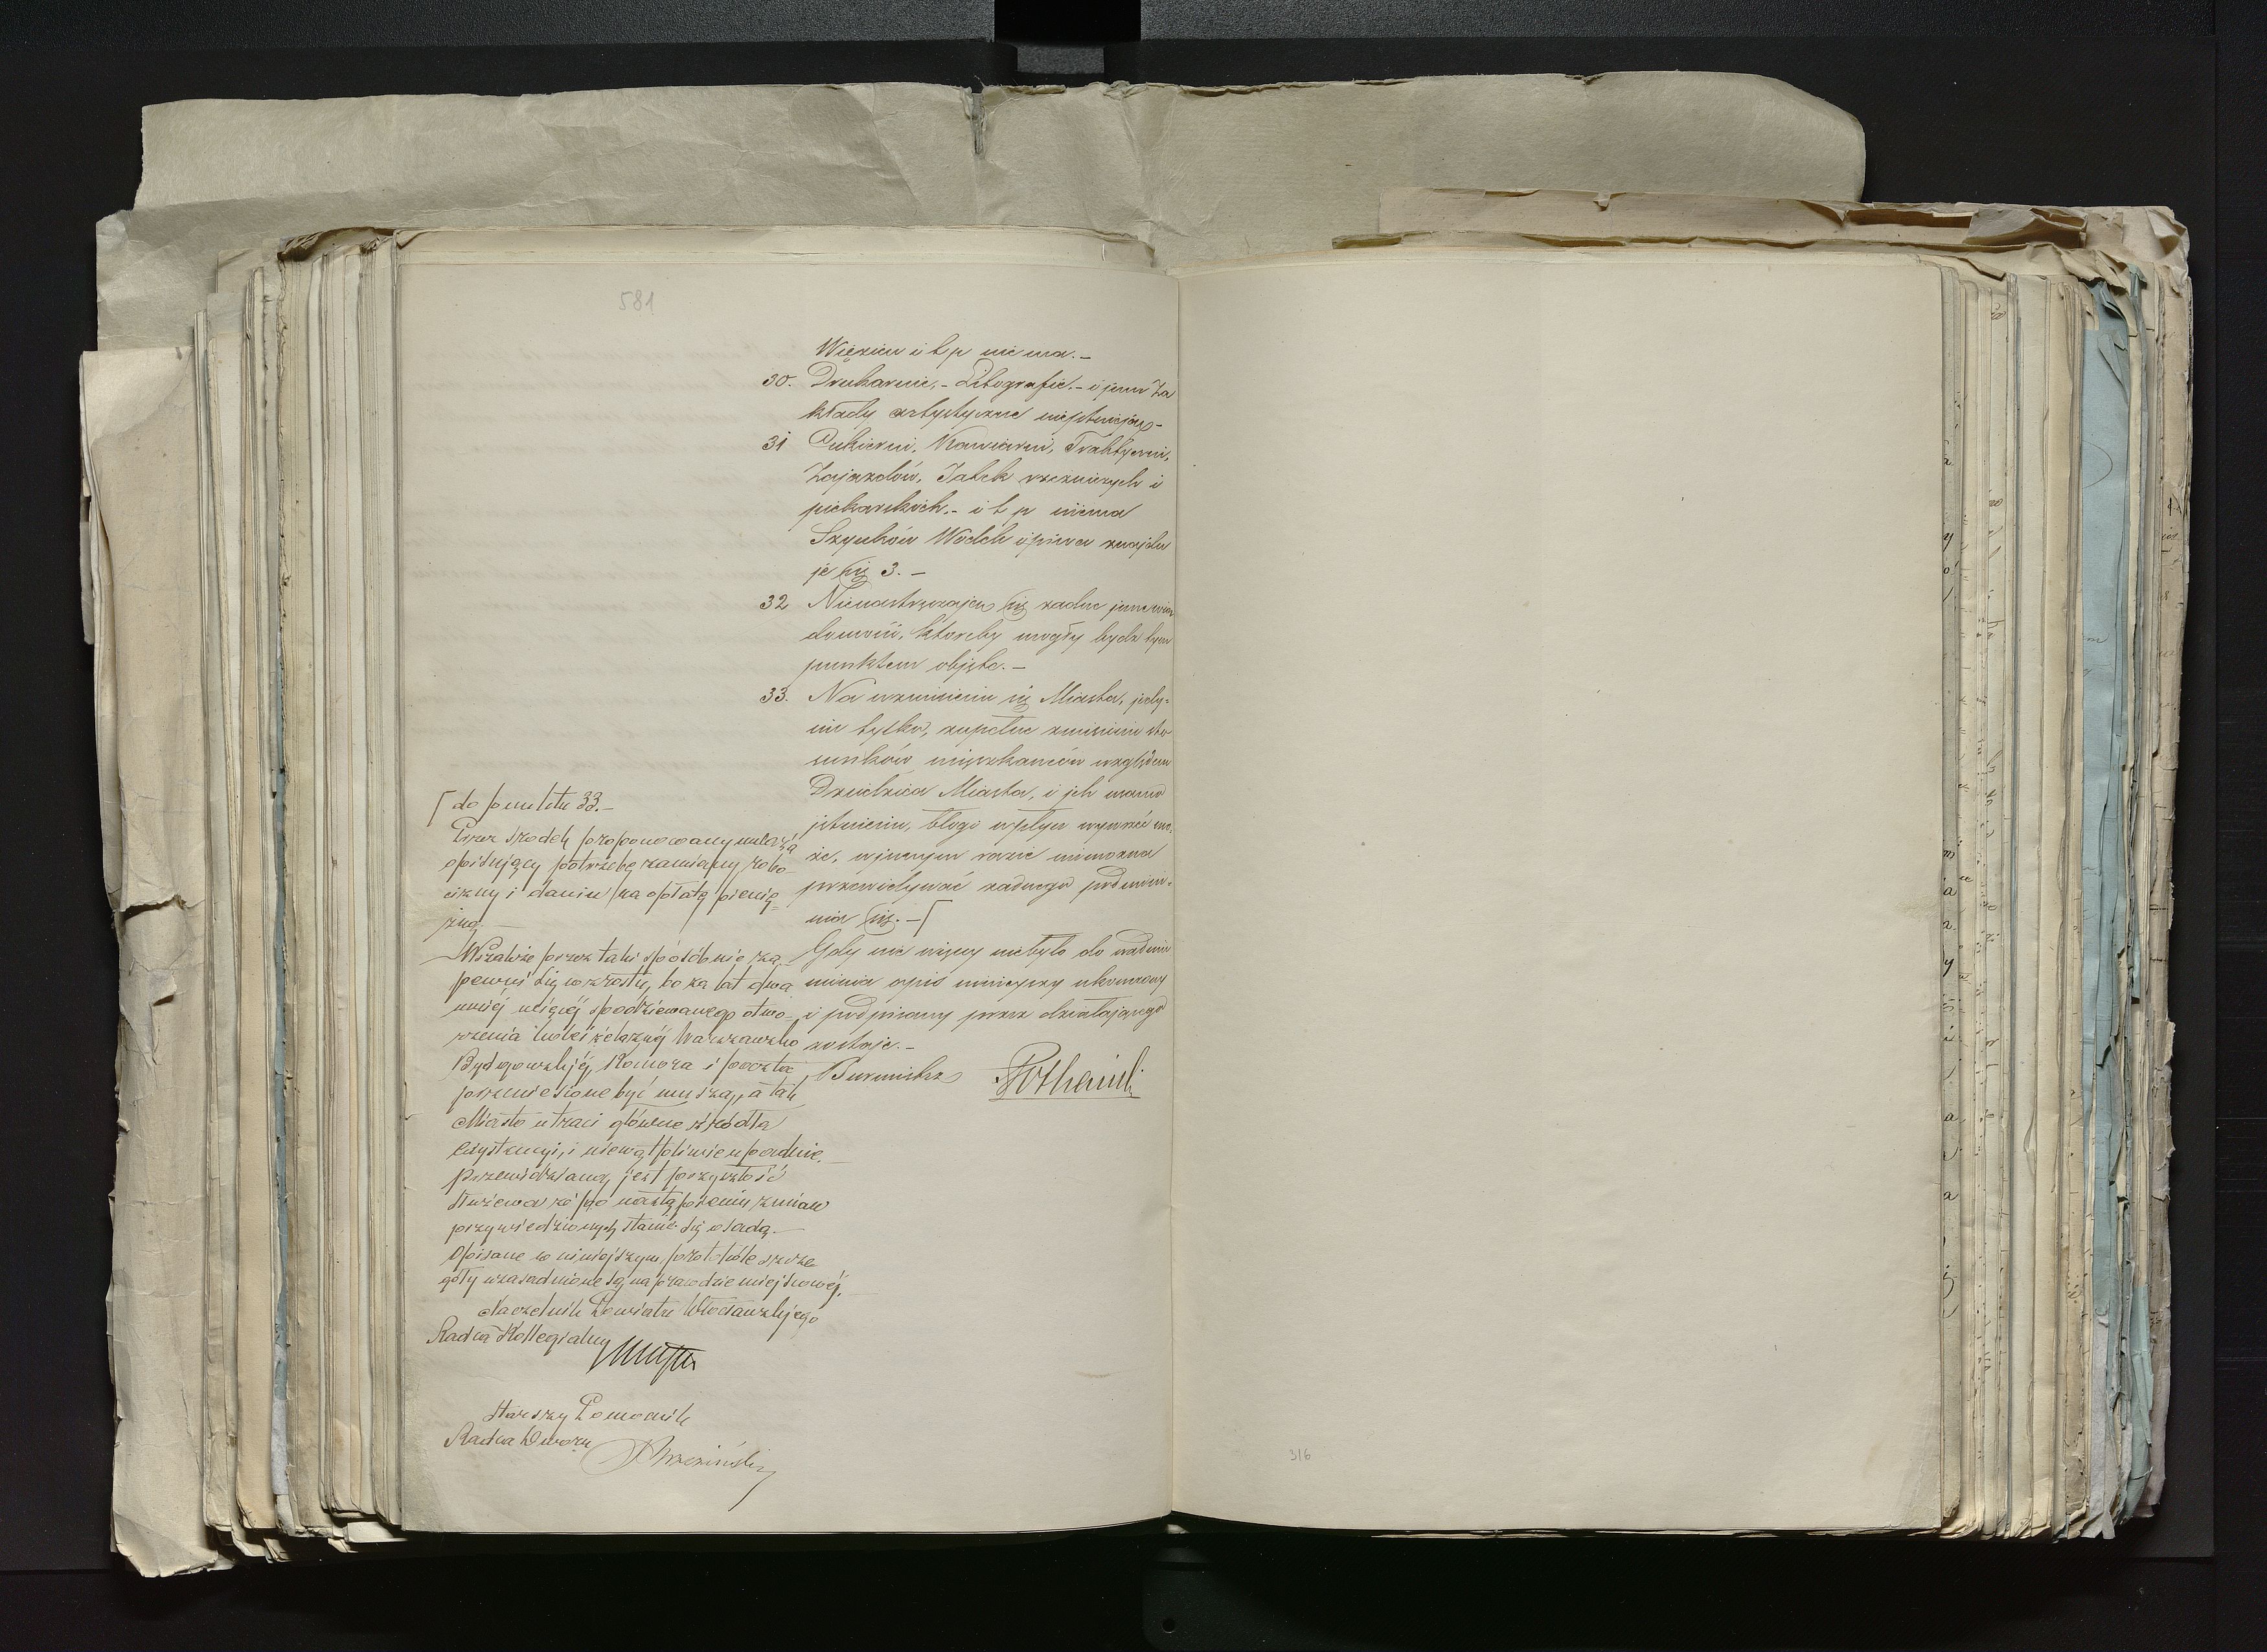 581
Więzień i t p nie ma. –
30. Drukarnie, – Litografie. – i jnne Za
kłady artystyczne nieistnieją –
31 Cukierni, Kawiarni, Traktyerni,
Zajazdów, Jatek rzeźniczych i
piekarskich. – i t p niema
Szynków Wódek i piwa znajdu
je się 3. –
32 Nienastręczają się żadne jnne wia
domości, któreby mogły bydz tym
punktem objęte. –
33. Na wzniesienie się Miasta, jedy-
nie tylko, zupełne zniesienie sto
sunków mieszkańców względem
Dziedzica Miasta, i jch
błogi wpływ wywrzeć mo-
że, w jnnym razie niemożna
przewidywać żadnego podnie-
nia się. –
Gdy nic więcej niebyło do nadmie
nienia opis niniejszy ukończony
i podpisany przez działającego
zostaje. –
Burmistrz
do punktu 33. –
Przez środek proponowany należy
opisujący potrzebę zamiany robo
cizny i danin na opłatę pienię
żną –
Wszakże przez taki sposób nie za
pewni się wzrostu, bo za lat dwa
mniej więcéj spodziewanego otwo
rzenia kolei żelaznéj Warszawsko
Bydgowskiéj, Komora i poczta
przeniesione być muszą, a tak
Miasto utraci główne źródła
egzystencyi, i niewątpliwie upadnie.
Przewidzianą jest przyszłość
Służewa że po nastąpieniu zmian
przywiedzionych stanie się osadą. –
Opisane w niniejszym protokóle szcze
góły uzasadnione są na prawdzie miejscowéj.
Naczelnik Powiatu Włocławskiego
Radca Kollegialny
Starszy Pomocnik
Radca Dworu
Brzeziński
316